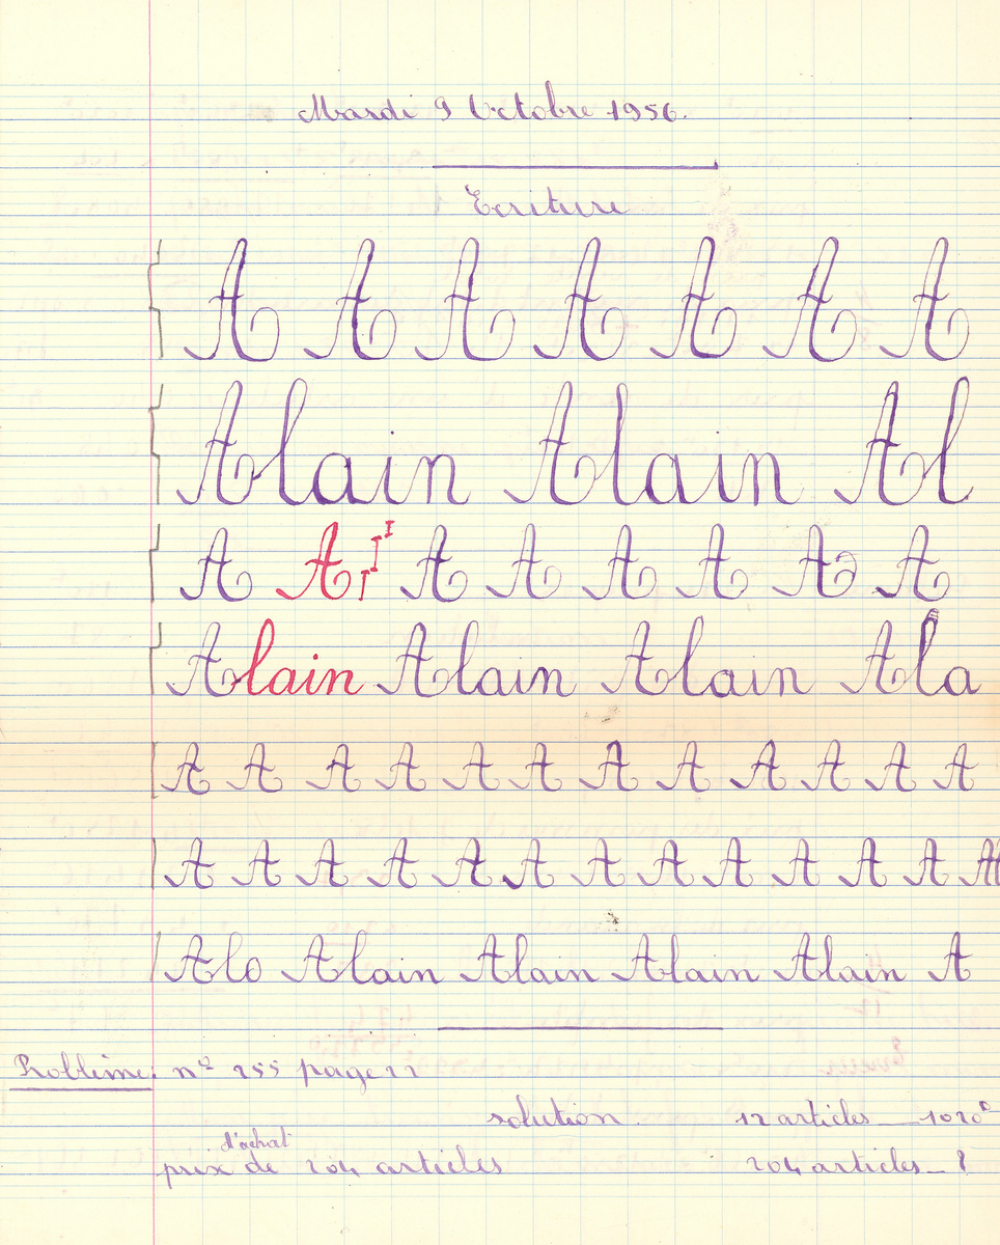 Mardi 9 Octobre 1956.
Ecriture
A A A A A A A
Alain Alain Al
A A A A A A A A
Alain Alain Alain Ala
A A A A A A A A A A A A
A A A A A A A A A A A A A
Alo Alain Alain Alain Alain A
Problème: n° 255 page 22
solution. 12 articles _ 1020
d'achat
prix de 204 articles 204 articles _ ?